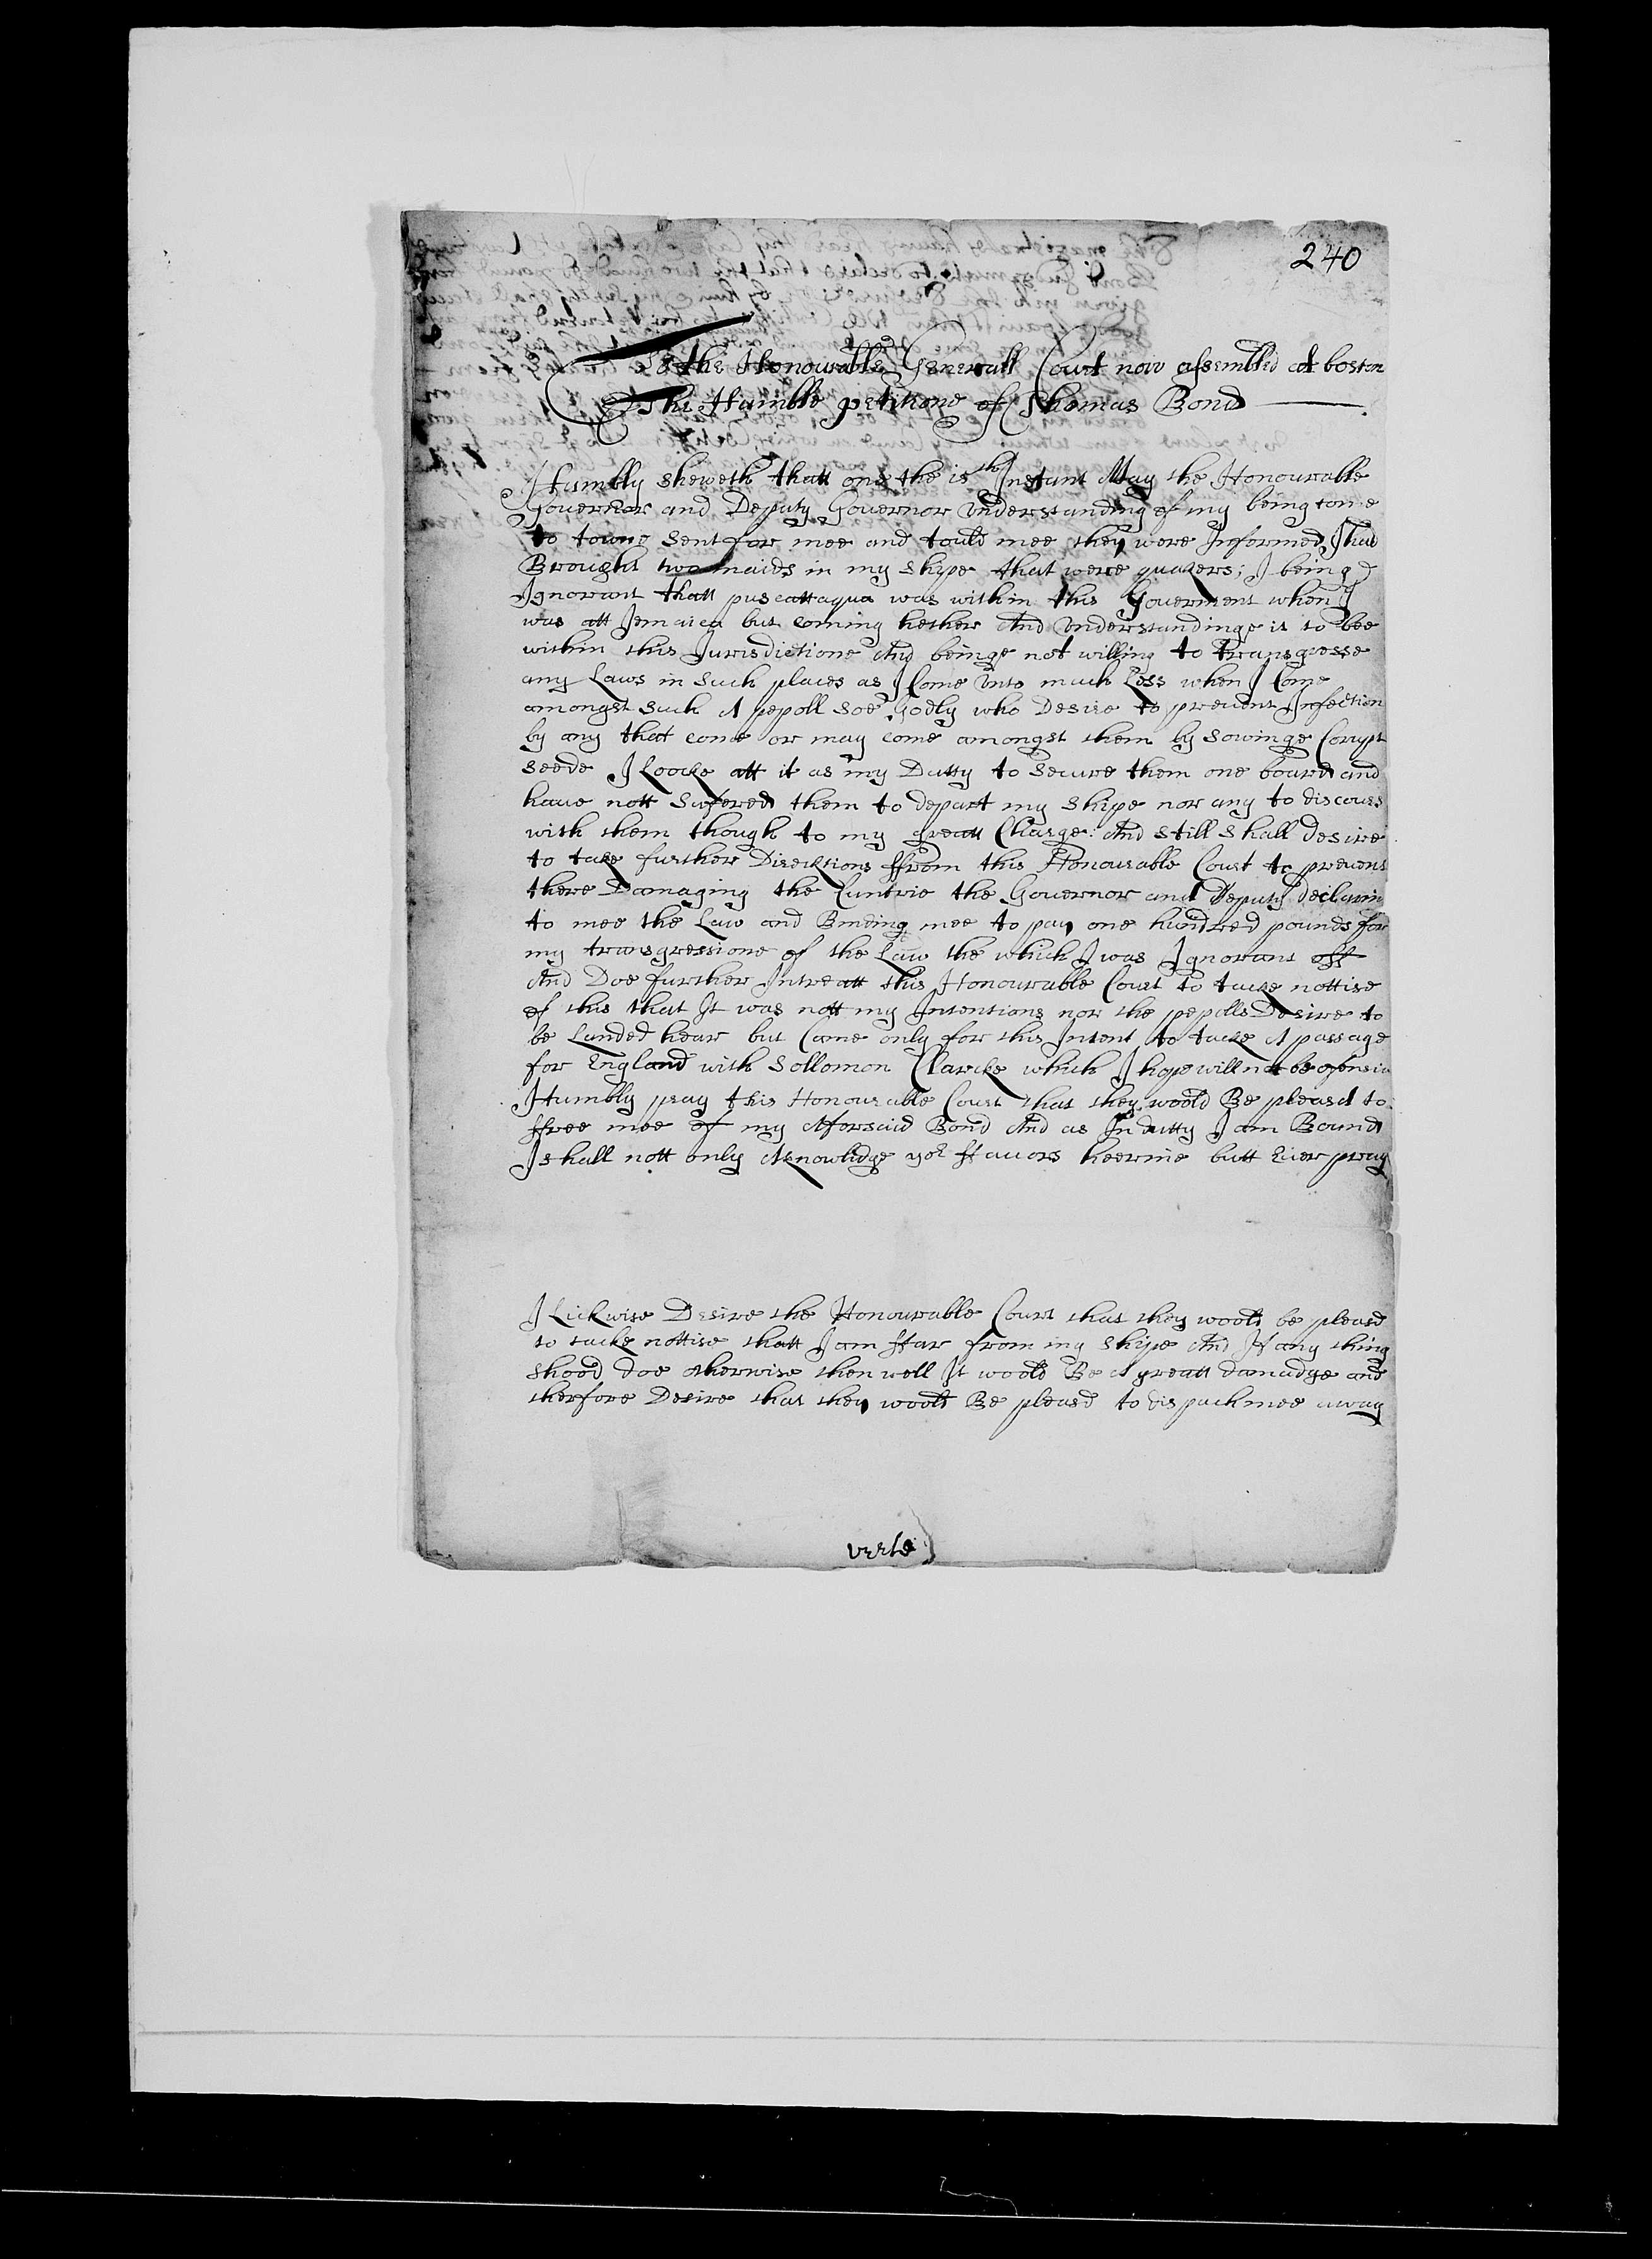 240
To the Honourable Generall Court now assembled att boston
The Humble petitione of Thomas Bond
Humbly sheweth thatt one the 15th Instant May the Honourable
Governor and Deputy Governor Understanding of my being come
to towne sent for mee and tould mee they were Informed I had
Brought two maids in my shipe that were quakers; I being
Ignorant thatt puscattaqua was within this Goverment when I
was att Jemaica but coming hether And Understandinge it to bee
within this Jurisdictione And beinge not willing to transgresse
any Laws in such places as I Come Unto much Less when I Come
amongst such A pepoll soe Godly who Desire to prevent Infection
by any that come or may come amongst them by sowinge Corrupt
seede I Loocke att it as my Dutty to secure them one bourd and
have nott sufered them to depart my shipe nor any to discours
with them though to my greatt Charge: And still shall desire
to take further Direcktions ffrom this Honourable Court to prevent
there Damaging the Cuntrie the Governor and Deputy Declaring
to mee the Law and Binding mee to pay one hundred pounds for
my transgressione of the Law the which I was Ignorant off
And Doe further Intreatt this Honourable Court to tacke nottise
of this that It was nott my Intentions nor the pepolls Desire to
be Landed hear but Came only for this Intent to tacke A passage
for England with Sollomon Clarcke which I hope will not be ofensiv
Humbly pray this Honourable Court that they woold Be pleasd to
ffree mee of my Aforsaid Bond And as In dutty I am Bound
I shall nott only Aknowlidge yor ffavors heerine butt Ever pray
I Lickwise Desire the Honourable Court that they woold be pleasd
to tacke nottise thatt I am ffar from my shipe And If any thing
shood doe otherwise then well It woold Be A greatt damadge and
therfore Desire that they woold Be pleasd to dispach mee away
verte